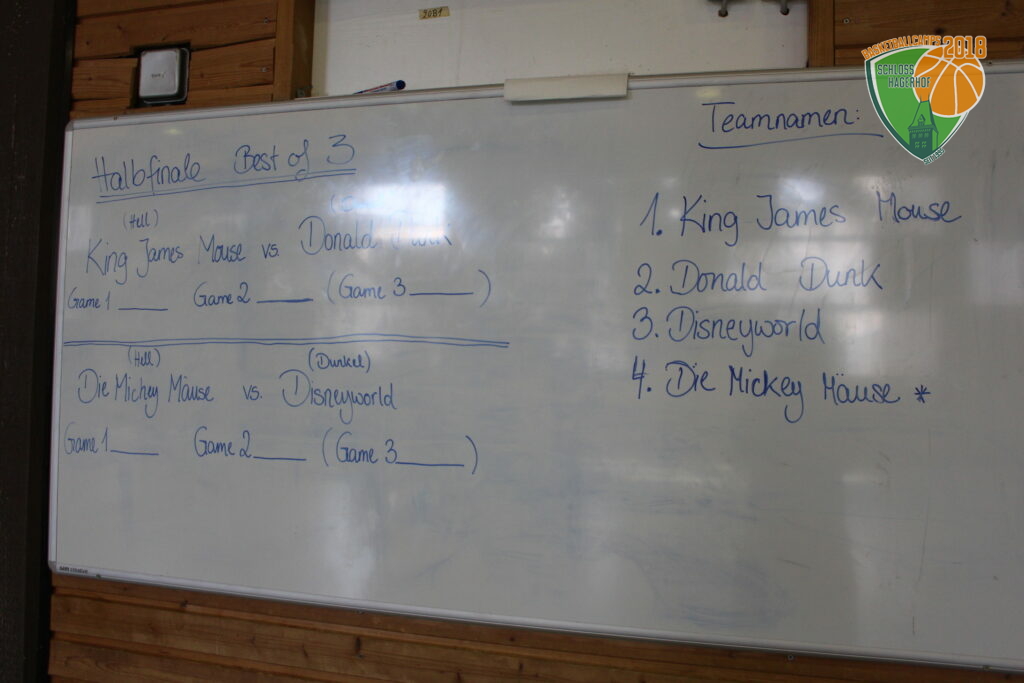 2081
BASKETBALLCAMPS 2018
SCHLOSS
HAGERHOF
Halbfinale Best of 3
(Hell)
King James Mouse vs. Donald Dunk
Game 1 ____ Game 2 ____ (Game 3 ____)
(Hell) (Dunkel)
Die Mickey Mäuse vs. Disneyworld
Game 1 ____ Game 2 ____ (Game 3 ____)
Teamnamen:
1. King James Mouse
2. Donald Dunk
3. Disneyworld
4. Die Mickey Mäuse *